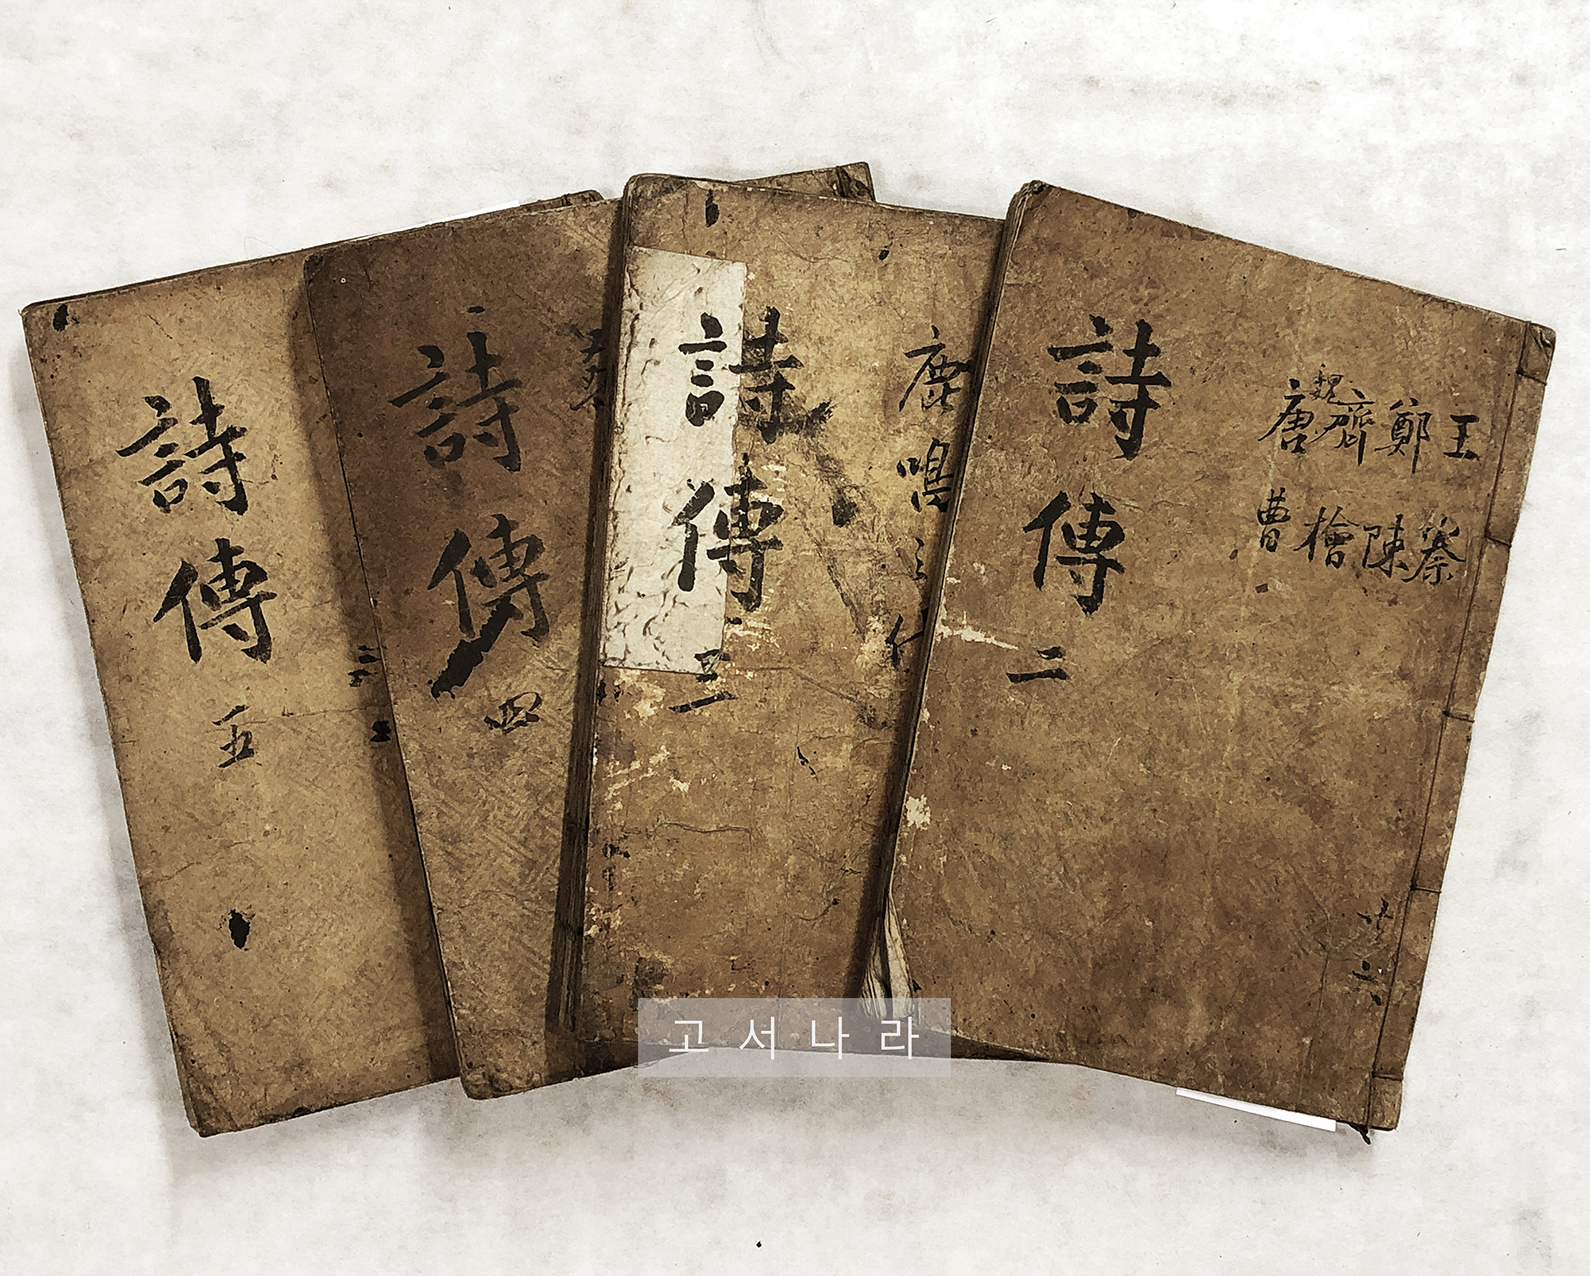 詩傳 五
詩傳 四
詩傳 三
鹿鳴之什
詩傳 二
王 鄭 齊 魏 唐
秦 陳 檜 曹
六
고서나라